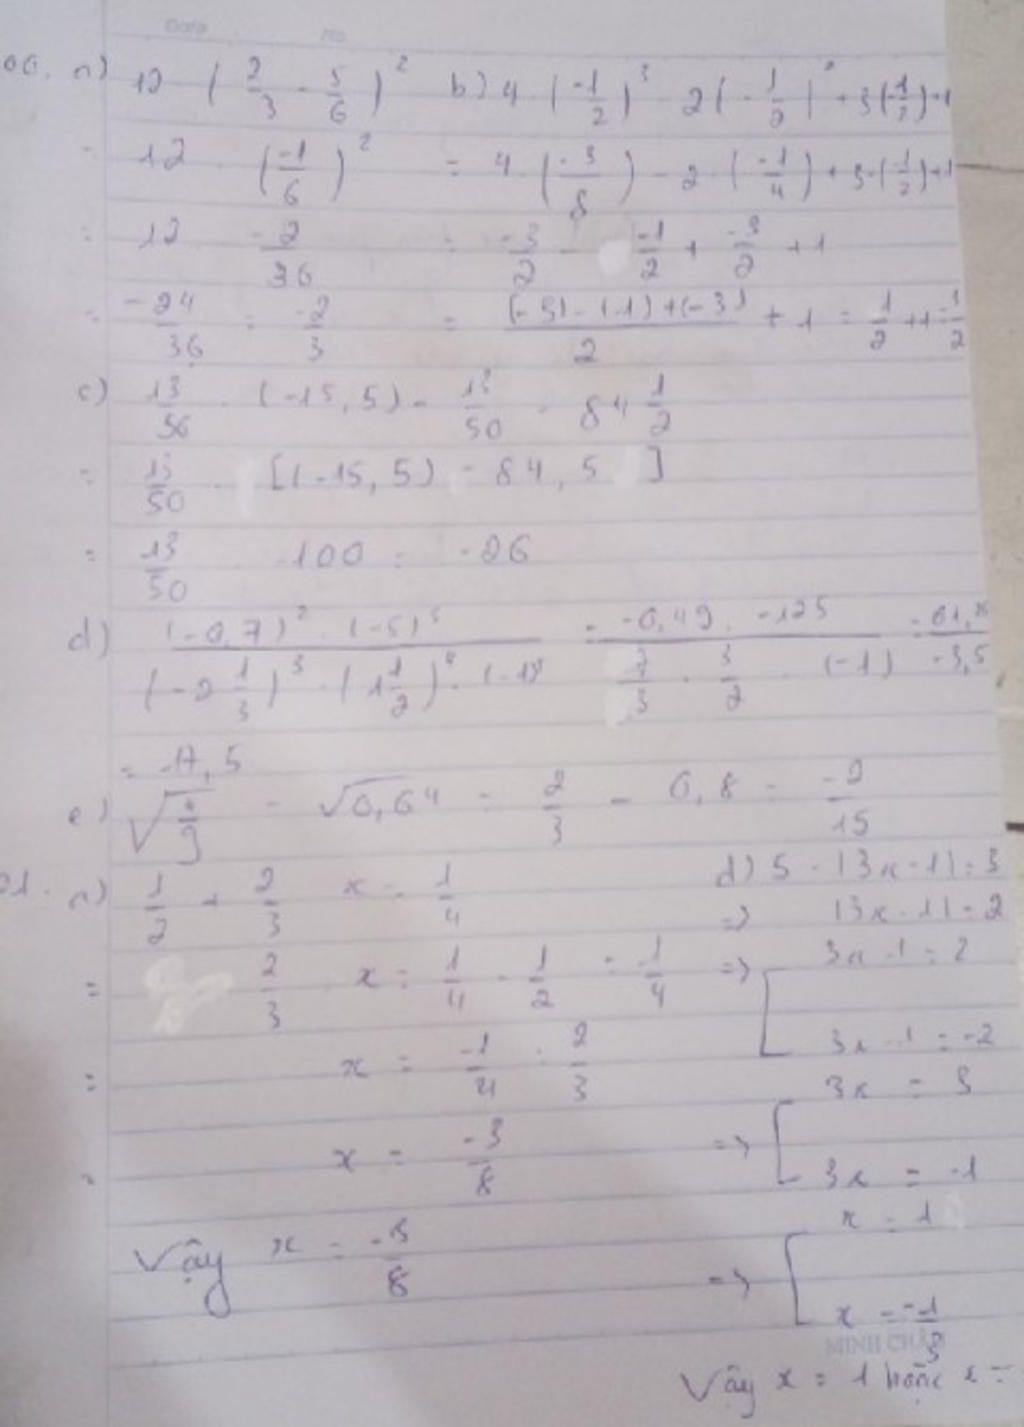 a) 12 . (2/3 - 5/6)^2 b) 4 . (-1/2)^3 - 2(-1/2)^2 + 3(-1/2) + 1
= 12 . (-1/6)^2 = 4 . (-3/8) - 2 . (-1/4) + 3 . (-1/2) + 1
= 12 . -2/36 = -3/2 - -1/2 + -3/2 + 1
= -24/36 = -2/3 = (-3) - (-1) + (-3)/2 + 1
c) . (-15,5) - 13/50 . 84 1/2
= 13/50 . [(-15,5) - 84,5]
= 13/50 . -100 = -26
d) (-0,7)^2 . (-5)^3 / (-2 1/3)^3 . (1 1/2)^4 . = -0,49 . -125 / 7/3 . 3/2 . (-1)
= -17,5
e) - √0,64 = 2/3 - 0,8 = -2/15
a) 1/2 + 2/3 x = 1/4
= 2/3 . x = 1/4 - 1/2 = -1/4
= x = -1/4 : 2/3
= x = -3/8
Vậy x = -3/8
d) 5 - |3x - 1| = 3
=> |3x - 1| = 2
=> [ 3x - 1 = 2
3x - 1 = -2
=> [ 3x = 3
3x = -1
=> [ x = 1
x = -1/3
MINH CHÂU
Vậy x = 1 hoặc x =